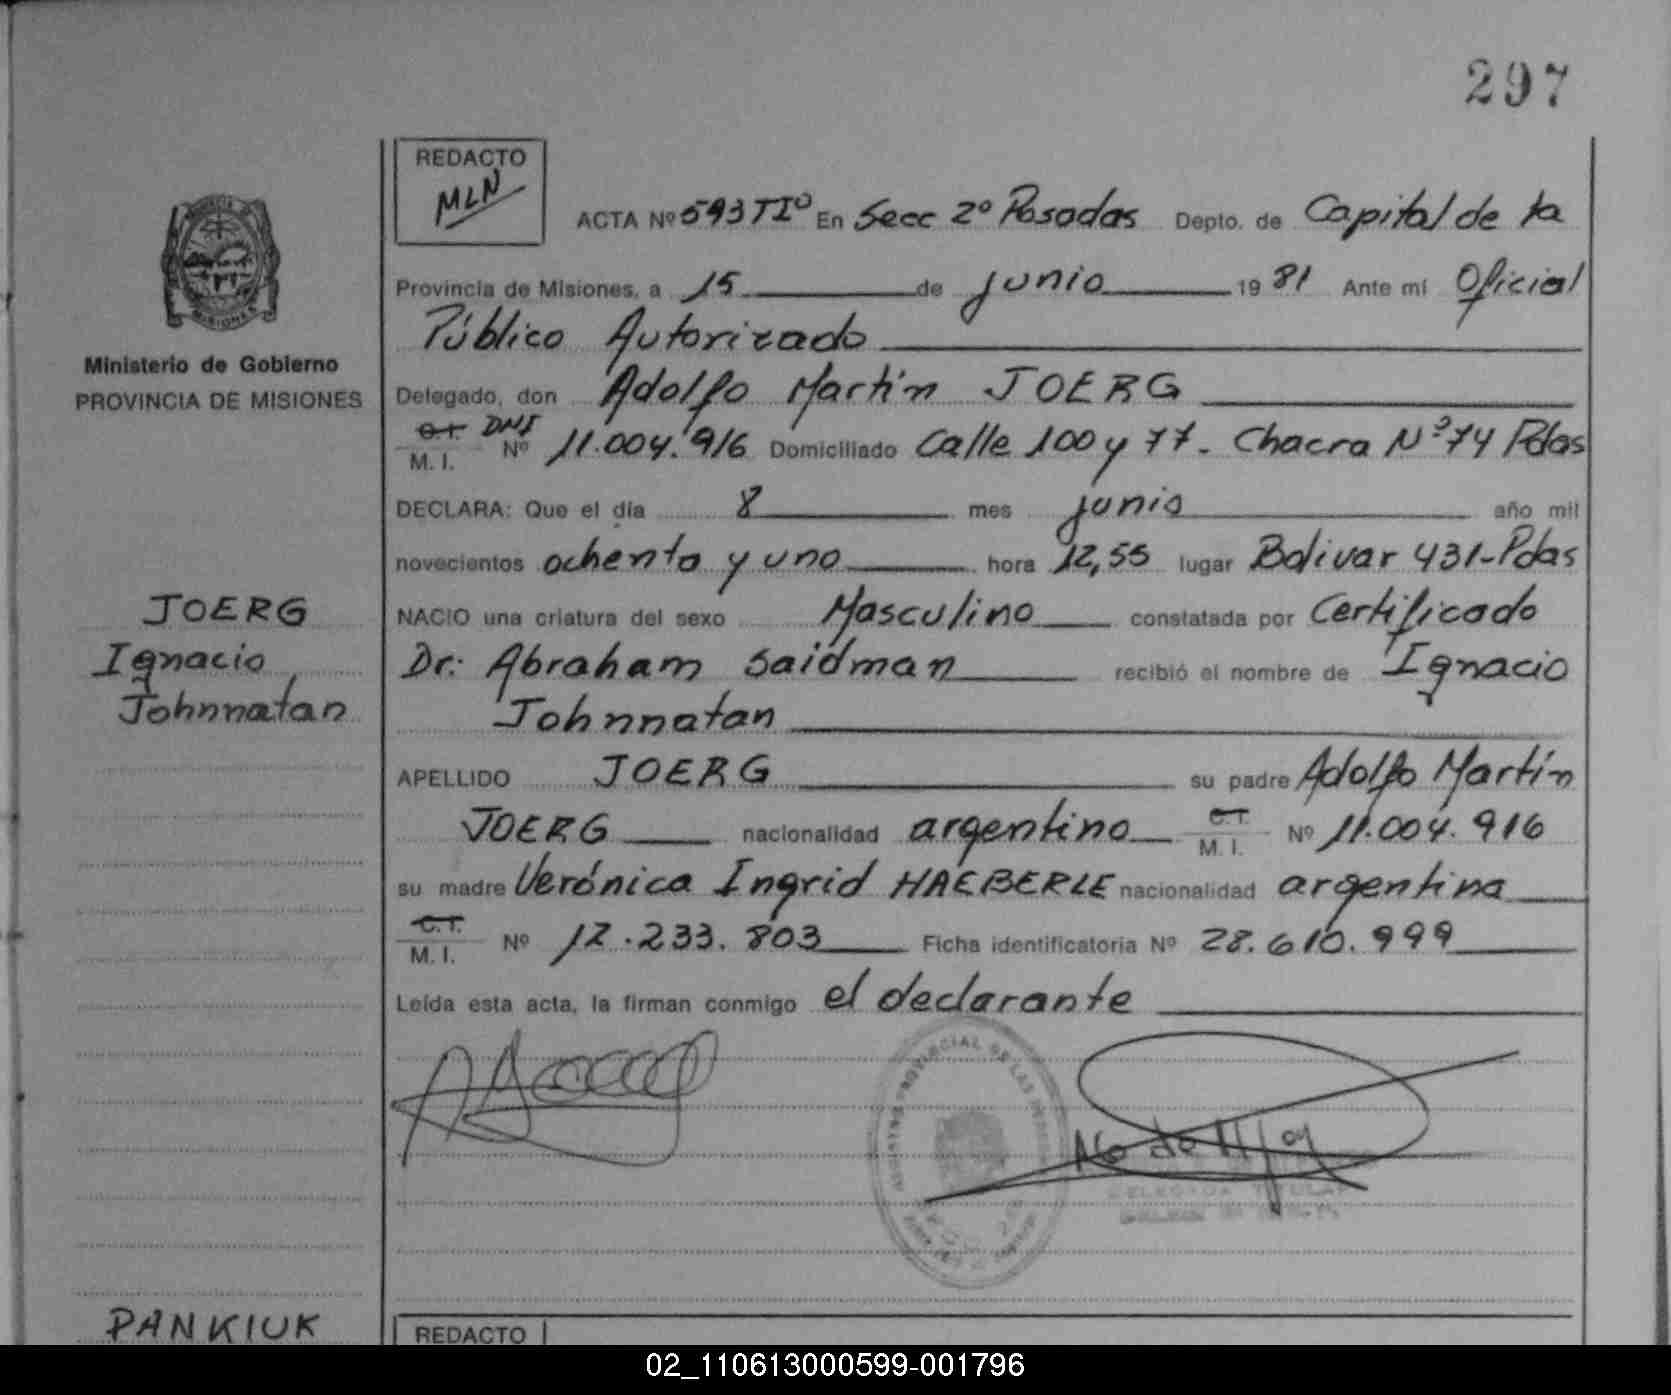 297
REDACTO
MLN
ACTA Nº 593 TIº En Secc 2º Posadas Depto. de Capital de la
Provincia de Misiones, a 15 de junio 1981 Ante mí Oficial
Público Autorizado
Ministerio de Gobierno
PROVINCIA DE MISIONES
Delegado, don Adolfo Martín JOERG
C.I. DNI
M. I. Nº 11.004.916 Domiciliado Calle 100 y 77 - Chacra Nº 74 Pdas
DECLARA: Que el día 8 mes junio año mil
novecientos ochenta y uno hora 12,55 lugar Bolivar 431-Pdas
JOERG
Ignacio
Johnnatan
NACIO una criatura del sexo Masculino constatada por Certificado
Dr: Abraham Saidman recibió el nombre de Ignacio
Johnnatan
APELLIDO JOERG su padre Adolfo Martín
JOERG nacionalidad argentino C.I. M. I. Nº 11.004.916
su madre Verónica Ingrid HAEBERLE nacionalidad argentina
C.I. M. I. Nº 12.233.803 Ficha identificatoria Nº 28.610.999
Leída esta acta, la firman conmigo el declarante
PROVINCIAL DE LAS
PANKIUK
REDACTO
02_110613000599-001796